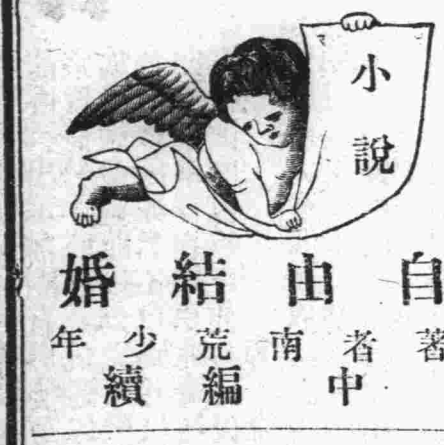 小說
自由結婚
著者南荒少年
中編續